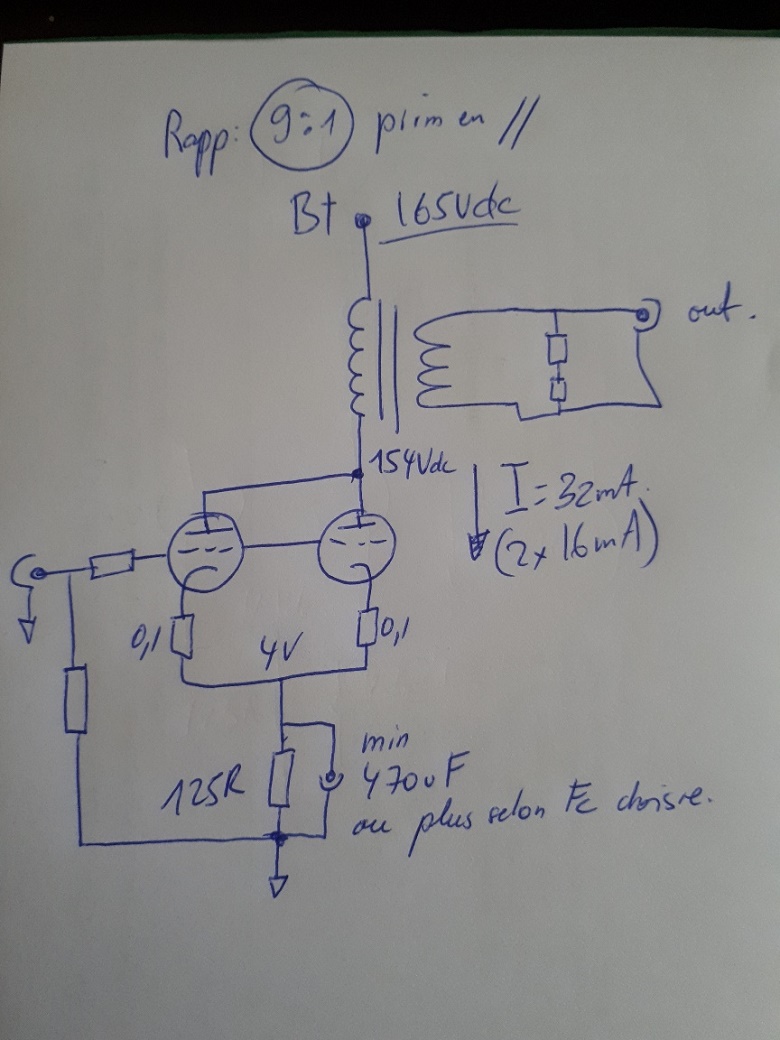 Rapp: 9:1 prim en //
B+ 165Vdc
out.
154Vdc
I = 32mA.
(2x 16mA)
0,1
4V
0,1
min
125R
470uF
ou plus selon Fc choisie.